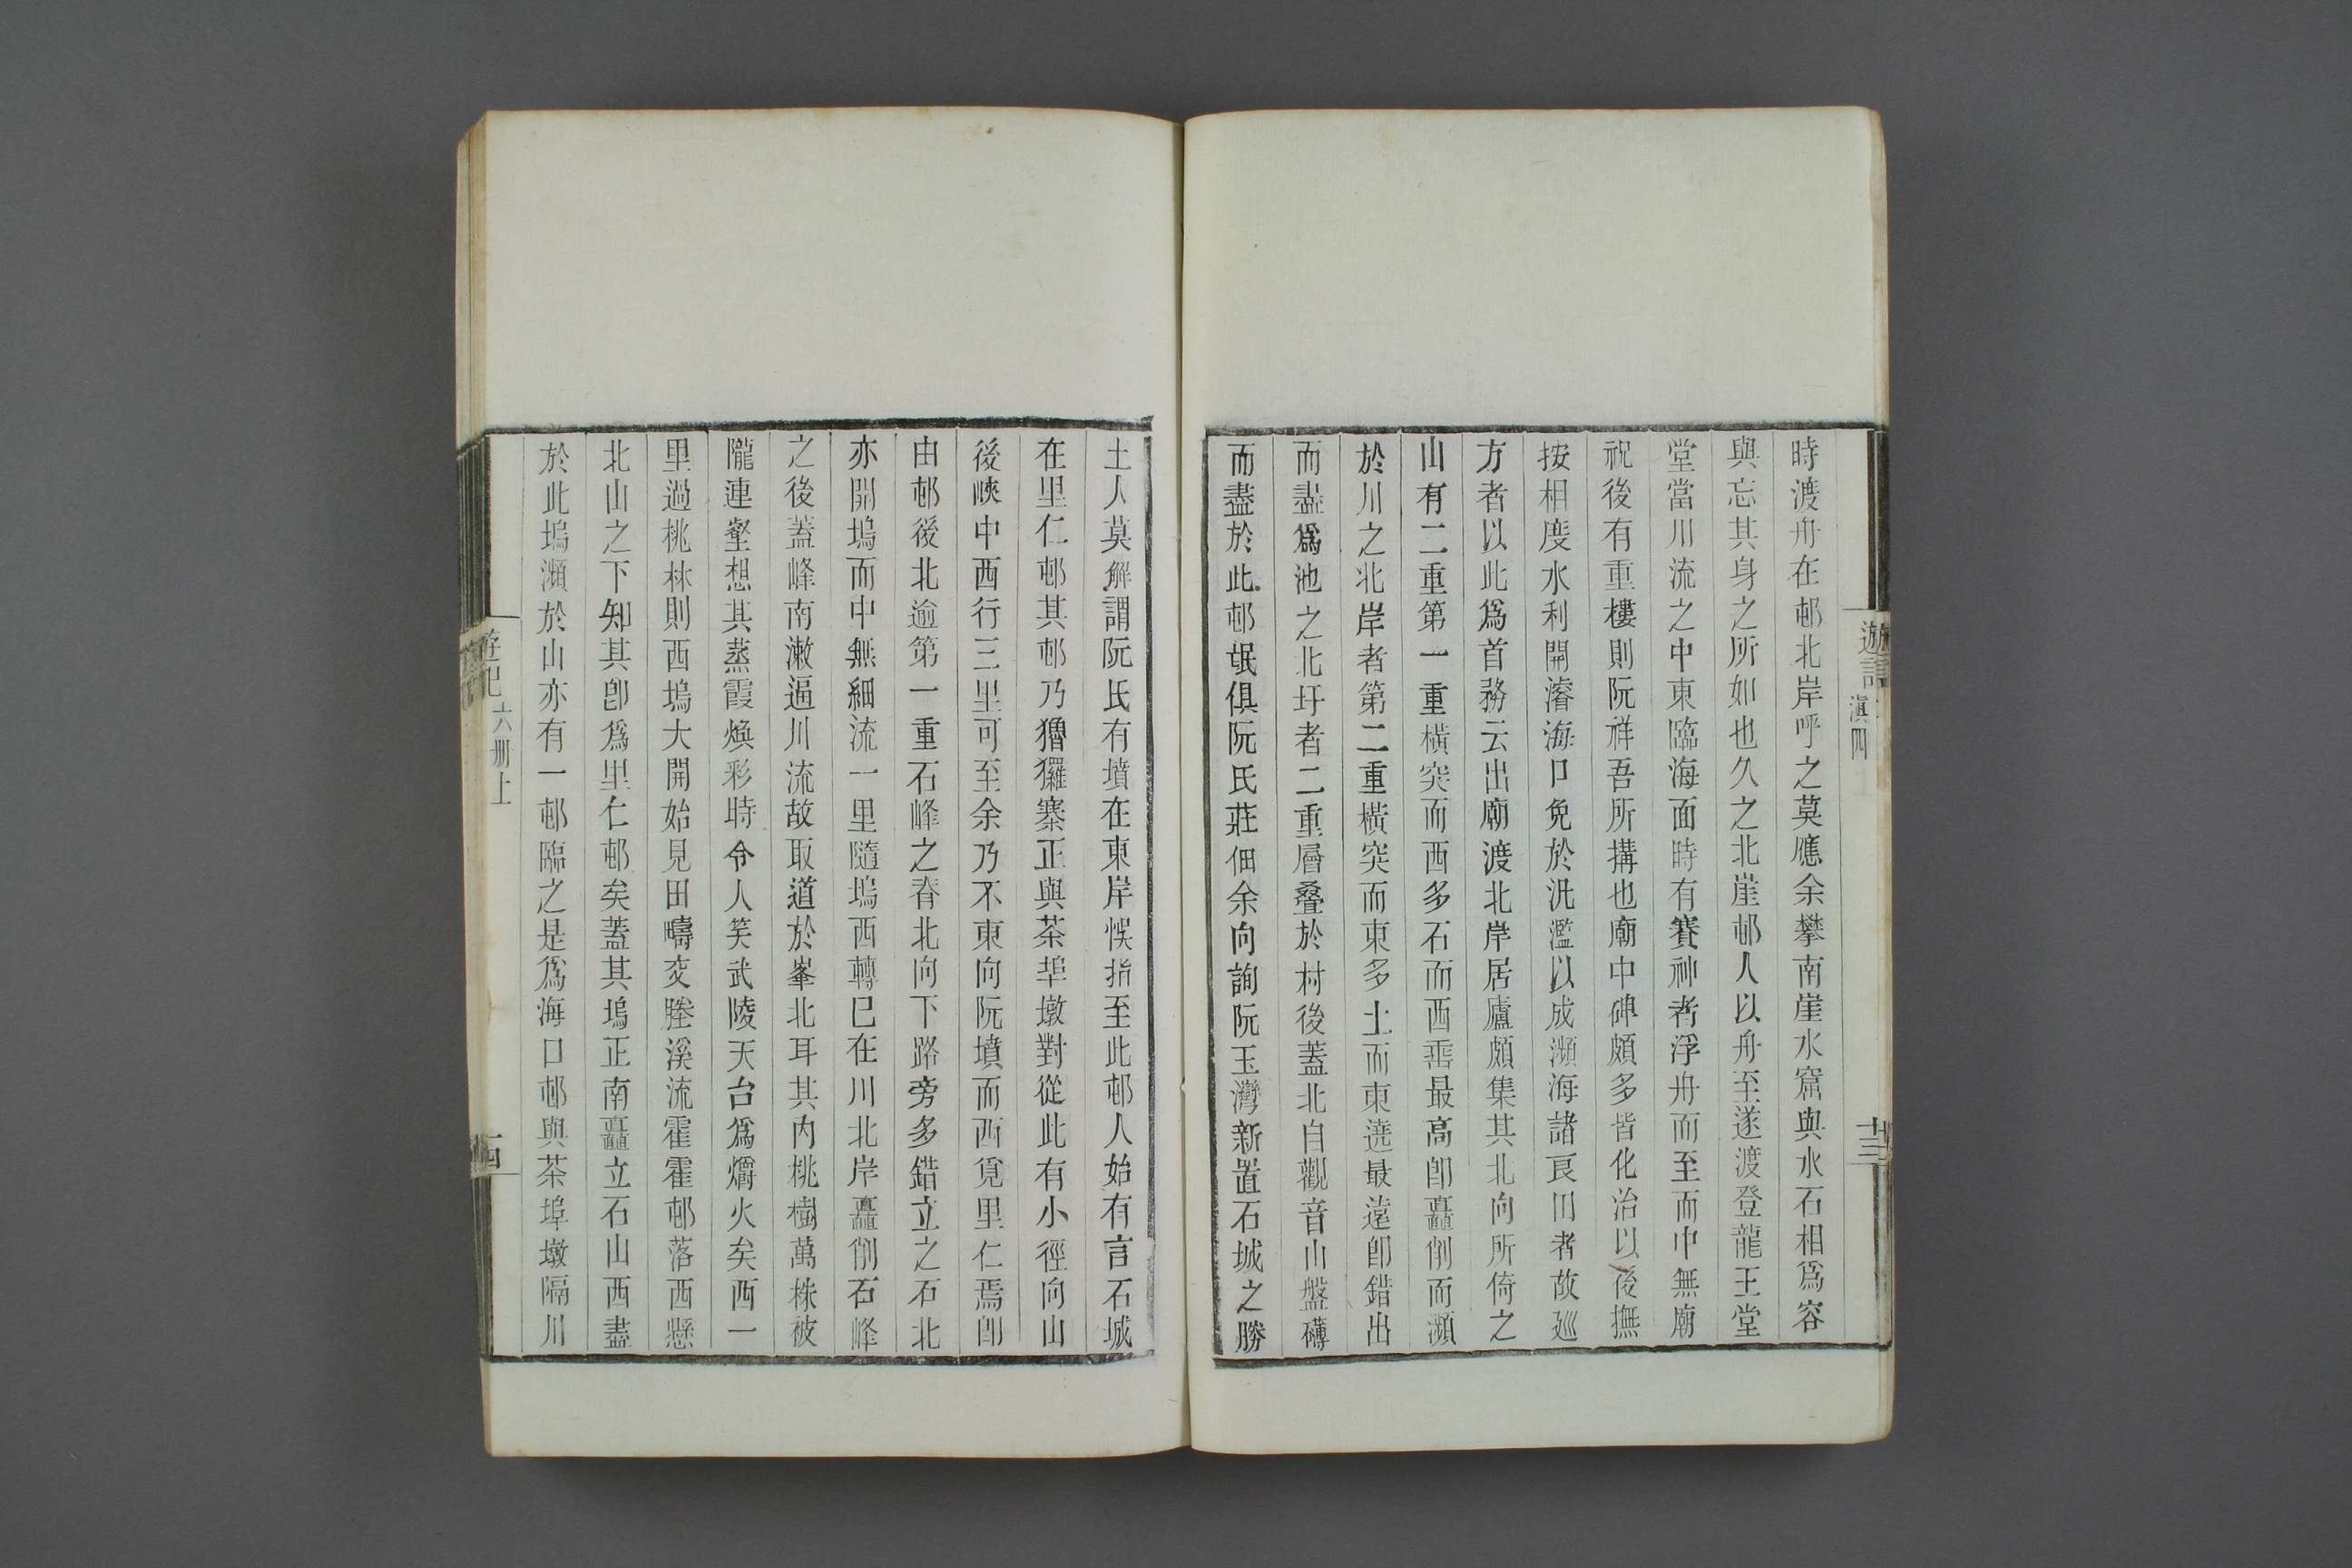 遊記
滇四
十三
時渡舟在邨北岸呼之莫應余攀南崖水窟與水石相爲容
與忘其身之所如也久之北崖邨人以舟至遂渡登龍王堂
堂當川流之中東臨海面時有賽神者浮舟而至而中無廟
祝後有重樓則阮祥吾所搆也廟中碑頗多皆化治以後撫
按相度水利開濬海口免於汎濫以成瀕海諸良田者故廵
方者以此爲首務云出廟渡北岸居廬頗集其北向所倚之
山有二重第一重橫突而西多石而西垂最高卽矗削而瀕
於川之北岸者第二重橫突而東多土而東遶最遠卽錯出
而盡爲池之北圩者二重層疊於村後蓋北自觀音山盤礴
而盡於此邨氓俱阮氏莊佃余向詢阮玉灣新置石城之勝
土人莫解謂阮氏有墳在東岸悞指至此邨人始有言石城
在里仁邨其邨乃玀玀寨正與茶埠墩對從此有小徑向山
後峽中西行三里可至余乃不東向阮墳而西覓里仁焉卽
由邨後北逾第一重石峰之脊北向下路旁多錯立之石北
亦開塢而中無細流一里隨塢西轉已在川北岸矗削石峰
之後蓋峰南漱逼川流故取道於峯北耳其內桃樹萬株被
隴連壑想其蒸霞煥彩時令人笑武陵天台爲爝火矣西一
里過桃林則西塢大開始見田疇交塍溪流霍霍邨落西懸
北山之下知其卽爲里仁邨矣蓋其塢正南矗立石山西盡
於此塢瀕於山亦有一邨臨之是爲海口邨與茶埠墩隔川
遊記
六册上